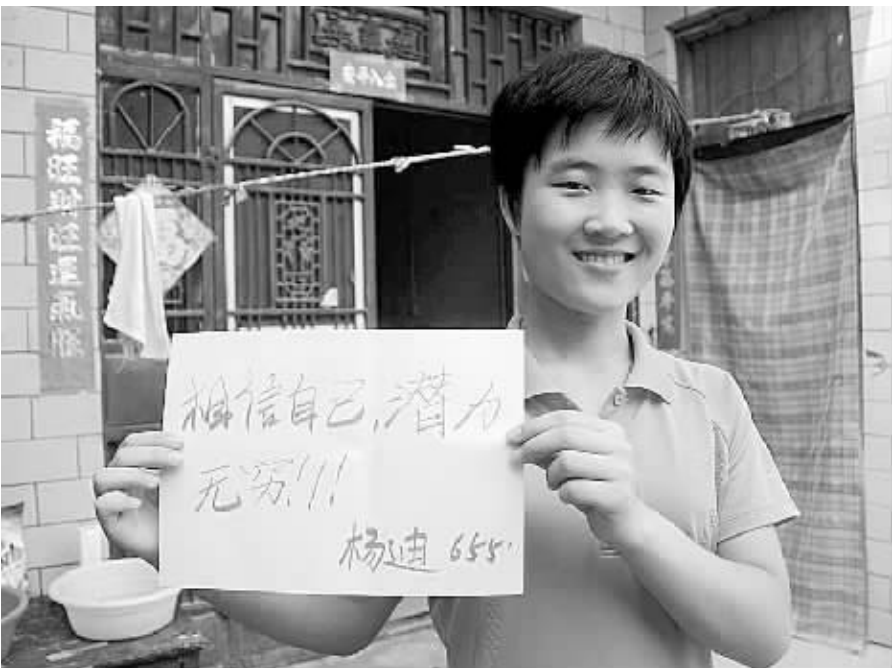 出平入安
福旺财旺运气旺
相信自己,潜力
无穷!!!
杨迪 655.